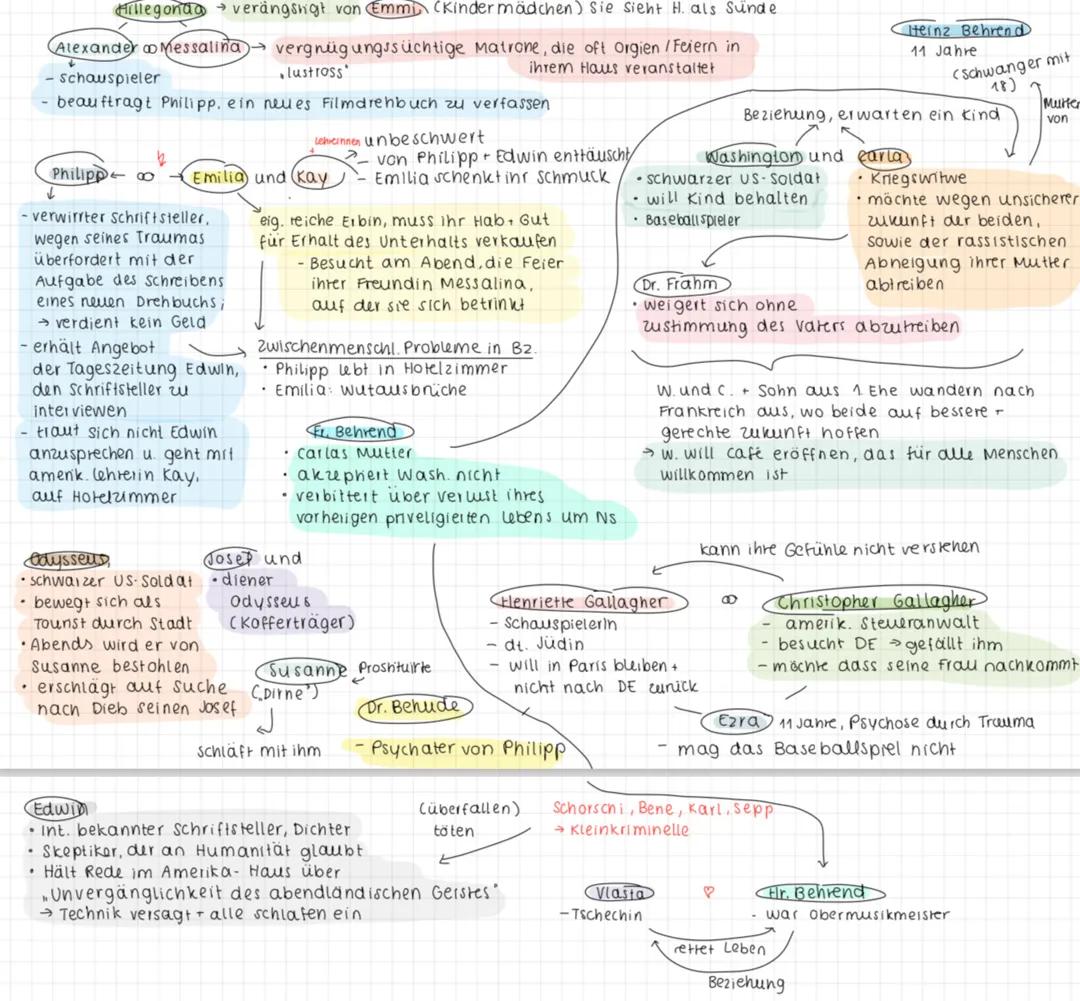 Hillegonda → verängstigt von Emmi (Kindermädchen) Sie sieht H. als Sünde
Alexander ∞ Messalina → vergnügungssüchtige Matrone, die oft Orgien/Feiern in
„lustross" ihrem Haus veranstaltet
- schauspieler
- beauftragt Philipp, ein neues Filmdrehbuch zu verfassen
Heinz Behrend
11 Jahre
(schwanger mit
18)
Mutter
von
Beziehung, erwarten ein Kind
Washington und Carla
• schwarzer US-Soldat
• will Kind behalten
• Baseballspieler
• Kriegswitwe
• möchte wegen unsicherer
zukunft der beiden,
sowie der rassistischen
Abneigung ihrer Mutter
abtreiben
Dr. Frahm
• weigert sich ohne
zustimmung des Vaters abzutreiben
W. und C. + Sohn aus 1. Ehe wandern nach
Frankreich aus, wo beide auf bessere +
gerechte zukunft hoffen
→ W. will Café eröffnen, das für alle Menschen
willkommen ist
Philipp ← ∞ → Emilia und Kay
Lehrerinnen
unbeschwert
- von Philipp + Edwin enttäuscht
- Emilia schenkt ihr Schmuck
- verwirrter Schriftsteller,
wegen seines Traumas
überfordert mit der
Aufgabe des Schreibens
eines neuen Drehbuchs;
→ verdient kein Geld
- erhält Angebot
der Tageszeitung Edwin,
den Schriftsteller zu
interviewen
- traut sich nicht Edwin
anzusprechen u. geht mit
amerik. Lehrerin Kay,
auf Hotelzimmer
eig. reiche Erbin, muss ihr Hab + Gut
für Erhalt des Unterhalts verkaufen
- Besucht am Abend, die Feier
ihrer Freundin Messalina,
auf der sie sich betrinkt
zwischenmenschl. Probleme in Bz.
• Philipp lebt in Hotelzimmer
• Emilia: Wutausbrüche
Fr. Behrend
• Carlas Mutter
• akzeptiert Wash. nicht
• verbittert über Verlust ihres
vorherigen priveligierten Lebens um NS
Odysseus
• schwarzer US-Soldat
• bewegt sich als
Tourist durch Stadt
• Abends wird er von
Susanne bestohlen
• erschlägt auf Suche
nach Dieb seinen Josef
Josef und
• diener
Odysseus
(Kofferträger)
Susanne Prostituirte
(„Dirne")
schläft mit ihm
Dr. Behude
- Psychater von Philipp
kann ihre Gefühle nicht verstehen
Henriette Gallagher ∞ Christopher Gallagher
- Schauspielerin
- dt. Jüdin
- will in Paris bleiben +
nicht nach DE zurück
- amerik. Steueranwalt
- besucht DE → gefällt ihm
- möchte dass seine Frau nachkommt
Ezra 11 Jahre, Psychose durch Trauma
- mag das Baseballspiel nicht
Edwin
• Int. bekannter Schriftsteller, Dichter
• Skeptiker, der an Humanität glaubt
• Hält Rede im Amerika-Haus über
„Unvergänglichkeit des abendländischen Geistes"
→ Technik versagt + alle schlafen ein
(überfallen)
töten
Schorschi, Bene, Karl, Sepp
→ Kleinkriminelle
Vlasta ♡ Hr. Behrend
- Tschechin
- war Obermusikmeister
rettet Leben
Beziehung